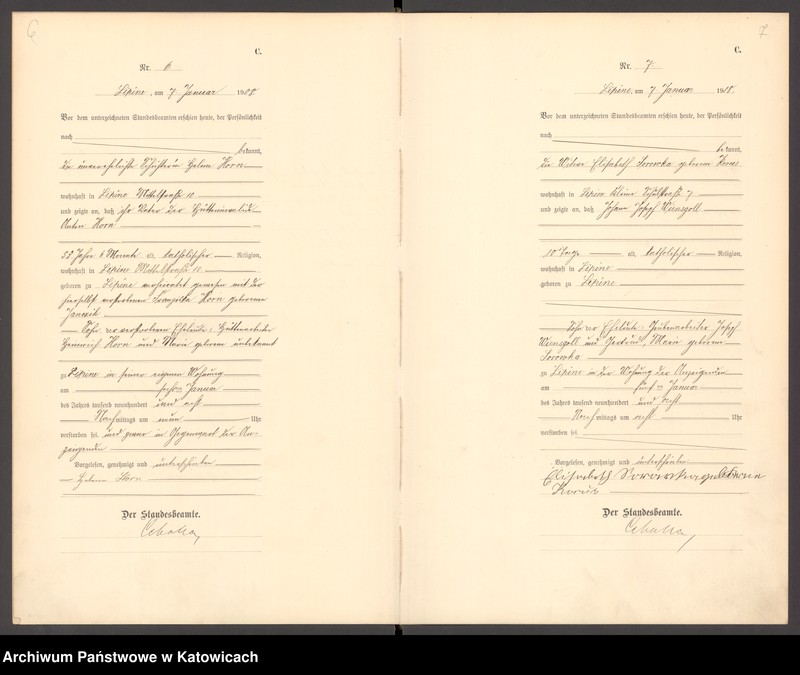 6
C.
Nr. 6
Lipine, am 7. Januar 1908
Vor dem unterzeichneten Standesbeamten erschien heute, der Persönlichkeit
nach
bekannt,
die unverehelichte Helene Horn
wohnhaft in Lipine Mittelstraße 10
und zeigte an, daß ihr Vater der Hütteninvalide
Anton Horn
58 Jahre 4 Monate alt, katholischer Religion,
wohnhaft in Lipine Mittelstraße
geboren zu Lipine verheiratet gewesen mit der
verstorbenen Horn geborenen
Sohn der verstorbenen Eheleute: Hüttenarbeiter
Heinrich Horn und Marie geboren unbekannt
zu Lipine in seiner eigenen Wohnung
am sechsten Januar
des Jahres tausend neunhundert und acht
Nachmittags um neun Uhr
verstorben sei, und zwar in Gegenwart der An-
zeigenden
Vorgelesen, genehmigt und unterschrieben
Helene Horn
Der Standesbeamte.
7
C.
Nr. 7
Lipine, am 7 Januar 1908.
Vor dem unterzeichneten Standesbeamten erschien heute, der Persönlichkeit
nach
bekannt,
die Witwe Elisabeth geborene
wohnhaft in Lipine kleine Schulstraße 7
und zeigte an, daß Johann Josef
10 Tage alt, katholischer Religion,
wohnhaft in Lipine
geboren zu Lipine
Sohn der Eheleute: Grubenarbeiter Josef
und Gertrud, Marie geborenen
zu Lipine in der Wohnung der Anzeigenden
am fünften Januar
des Jahres tausend neunhundert und acht
Nachmittags um acht Uhr
verstorben sei.
Vorgelesen, genehmigt und unterschrieben
Elisabeth geborene
Der Standesbeamte.
Archiwum Państwowe w Katowicach